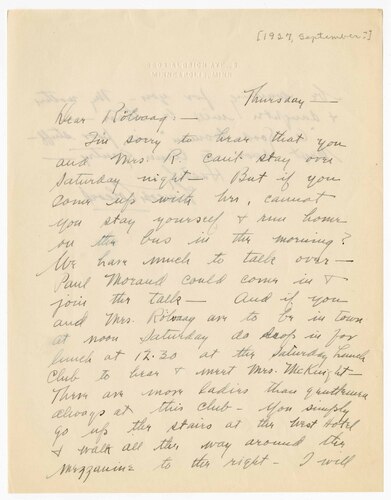 [1927, September?]
Thursday —
Dear Rölvaag: —
I'm sorry to hear that you
and Mrs R. can't stay over
Saturday night — But if you
come up with her, cannot
you stay yourself & run home
on the bus in the morning?
We have much to talk over —
Paul Morand could come in &
join the talk — And if you
and Mrs. Rölvaag are to be in town
at noon Saturday do drop in for
lunch at 12:30 at the Saturday Lunch
Club to hear & meet Mrs. McKnight —
There are more ladies than gentlemen
always at this club — You simply
go up the stairs at the West Hotel
& walk all the way around the
Mezzanine to the right — I will